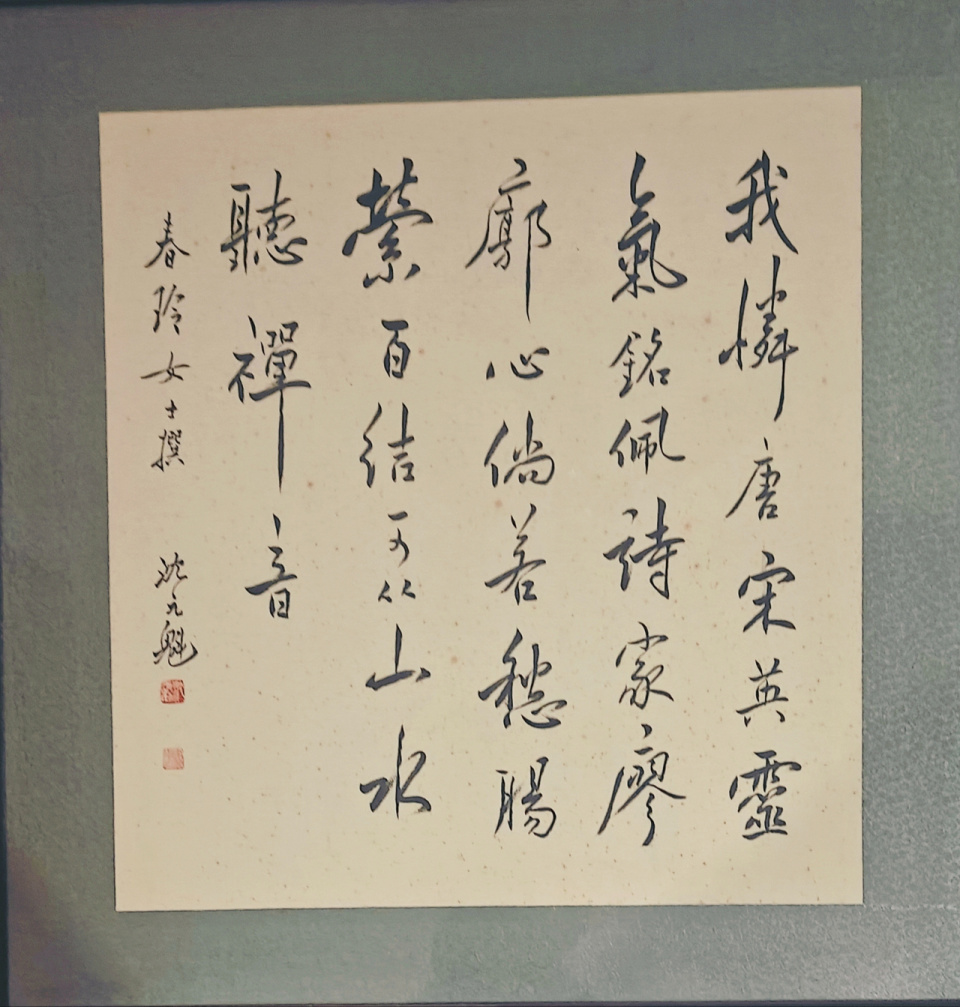 我憐唐宋英靈
氣銘佩詩家廖
廓心倘若愁腸
縈百結可從山水
聽禪音
春玲女士撰 沈元魁